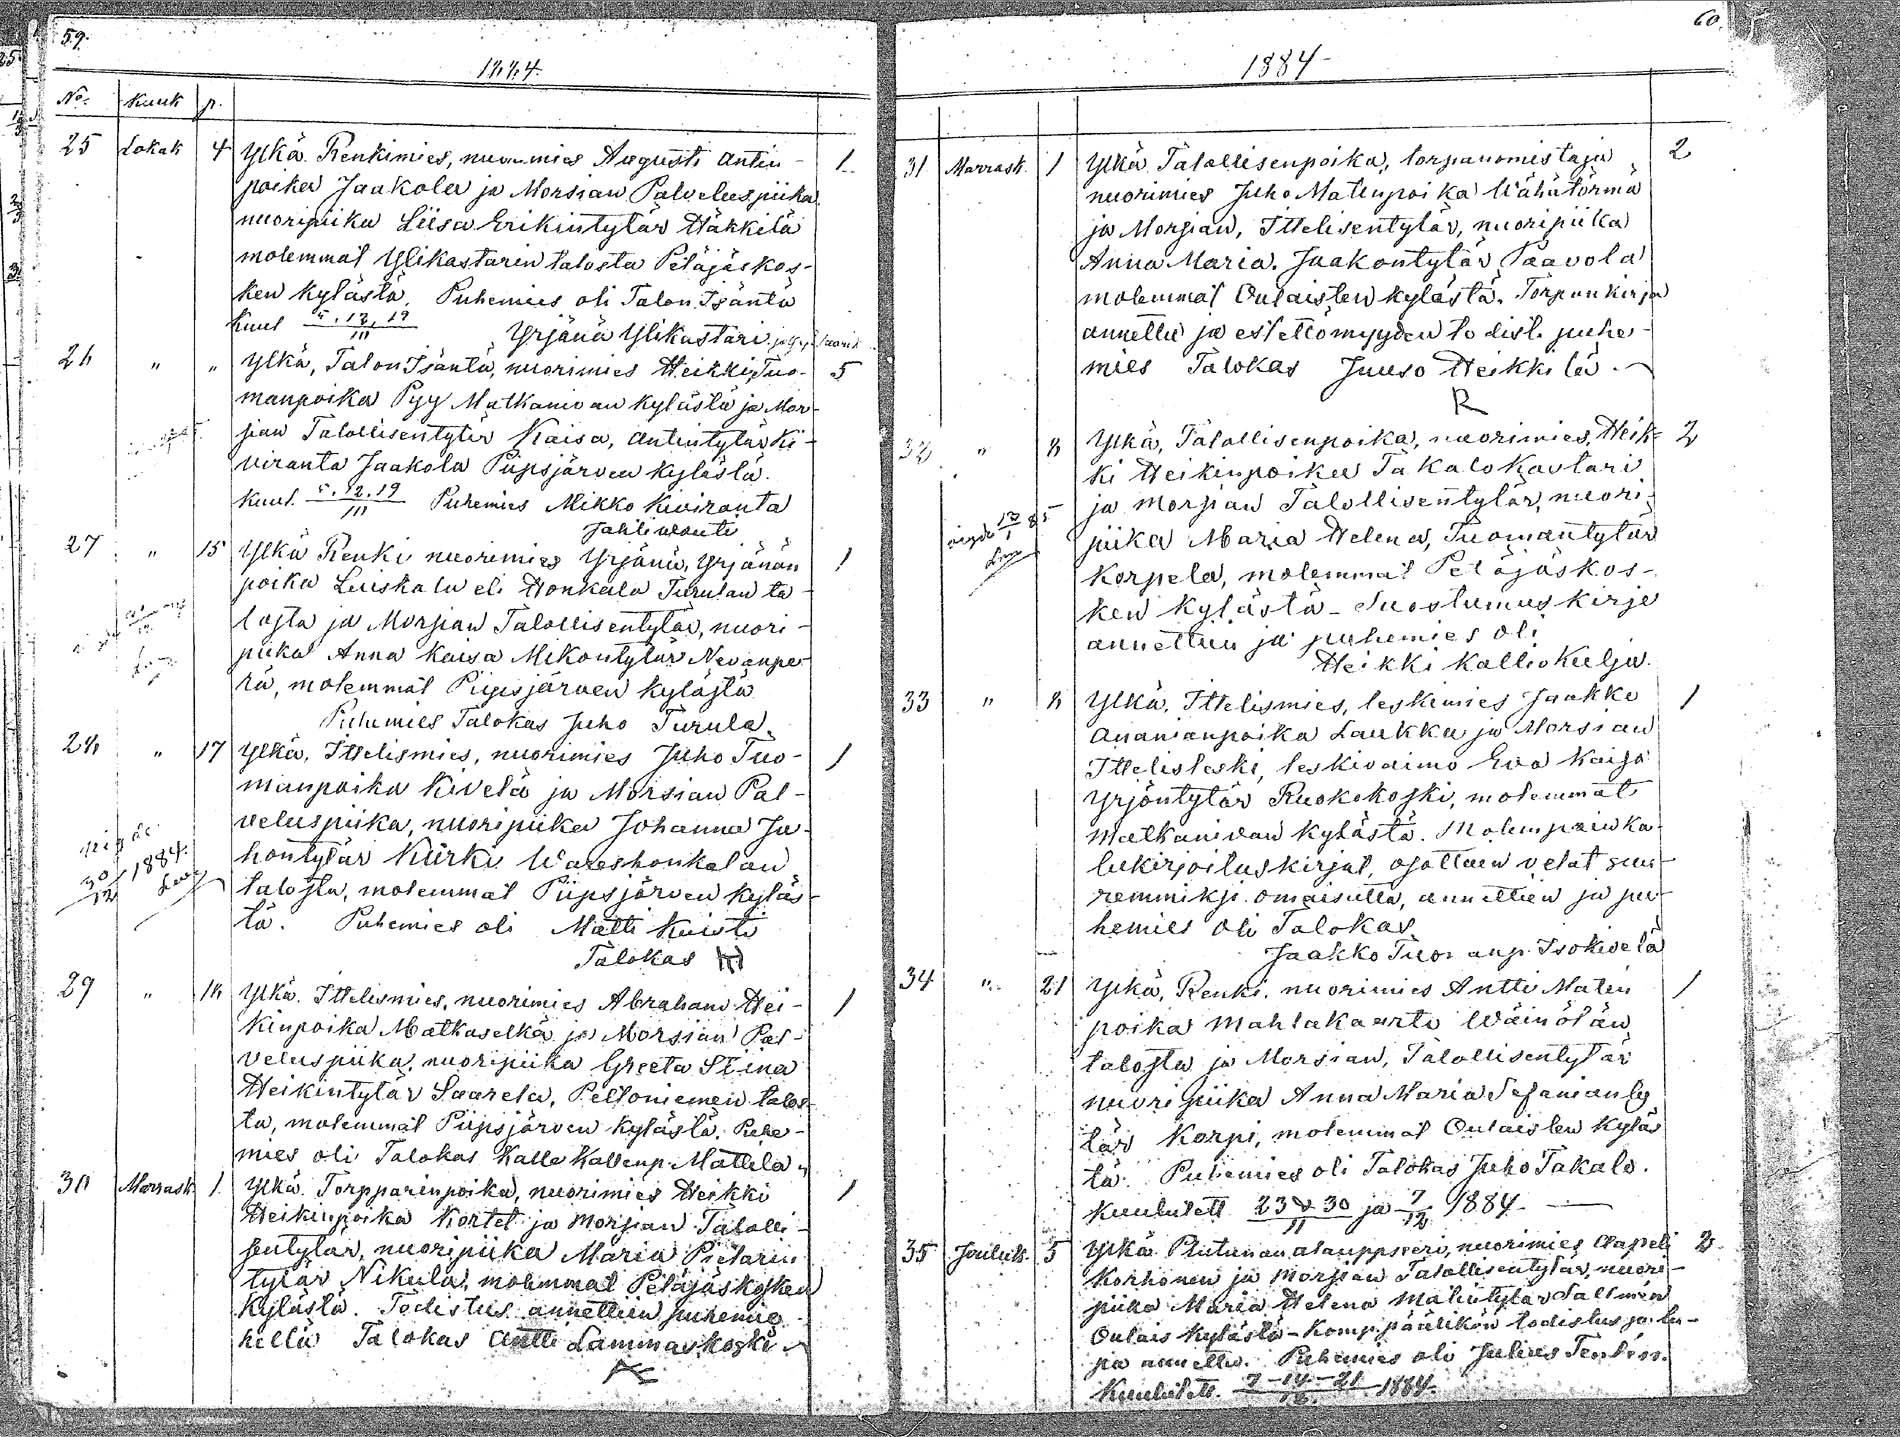 59.
1884.
No. Kuuk p.
25 Lokak 4 Ylkä Renkimies, nuorimies Augusti Antin- 1
poika Jaakola ja Morsian Palveluspiika
nuoripiika Liisa Erikintytär Häkkilä
molemmat Ylikastarin talosta Petäjäskos-
ken kylästä. Puhemies oli Talon Isäntä
Kuul 5.12.19 Yrjänä Ylikastari
III
26 " " Ylkä, Talon Isäntä, nuorimies Heikki Tuo- 5
manpoika Pyy Matkanivan kylästä ja Mor-
sian Talollisentytär Kaisa, Antintytär Ki-
viranta Jaakola Piipsjärven kylästä.
Kuul. 5.12.19 Puhemies Mikko Kiviranta
III
Jahtivouti
27 " 15 Ylkä Renki nuorimies Yrjänä, Yrjänän 1
poika Luiskala eli Honkala Turulan ta-
losta ja Morsian Talollisentytär, nuori-
piika Anna Kaisa Mikontytär Nevanpe-
rä, molemmat Piipsjärven kylästä
Puhemies Talokas Juho Turula.
28 " 17 Ylkä, Ittelismies, nuorimies Juho Tuo- 1
manpoika Kivelä ja Morsian Pal-
veluspiika, nuoripiika Johanna Ju-
hontytär Kürki Wareshonkalan
talosta, molemmat Piipsjärven kyläs-
tä. Puhemies oli Matti Kuisti
Talokas
30/12 1884.
29 " 18 Ylkä. Ittelismies, nuorimies Abraham Hei- 1
kinpoika Matkaselkä ja Morsian Pal-
veluspiika, nuoripiika Greeta Stiina
Heikintytär Saarela, Peltoniemen talos-
ta, molemmat Piipsjärven kylästä. Puhe-
mies oli Talokas Kalle Kallenp. Mattila
30 Marrask 1 Ylkä. Torpparinpoika, nuorimies Heikki 1
Heikinpoika Kortet ja Morsian Talolli-
sentytär, nuoripiika Maria Pietarin
tytär Nikula, molemmat Petäjäskosken
kylästä. Todistus annettiin puhemie
hellä Talokas Antti Lammaskoski
60.
1884
31 Marrask. 1 Ylkä Talollisenpoika, torpanomistaja 2
nuorimies Juho Matinpoika Wähätörmä
ja Morsian, Ittelisentytär, nuoripiika
Anna Maria. Jaakontytär Paavola
molemmat Oulaisten kylästä. Torpan kirja
annettu ja estettömyyden todist. puhe-
mies Talokas Juuso Heikkilä.
32 " 8 Ylkä, Talollisenpoika, nuorimies, Heik- 2
ki Heikinpoika Takalokastari
ja Morsian Talollisentytär, nuori-
piika Maria Helena, Tuomantytär
Korpela, molemmat Petäjäskos-
ken kylästä - Suostumus kirje
annettiin ja puhemies oli
Heikki Kalliokulja.
33 " 8 Ylkä. Ittelismies, leskimies Jaakko 1
Ananianpoika Laukka ja Morsian
Ittelisleski, leskivaimo Eva Kaisa
Yrjöntytär Ruokokoski, molemmat
Matkanivan kylästä. Molempain ka-
lukirjoituskirjat, osottaen velat suu-
remmiksi omaisutta, annettiin ja pu-
hemies oli Talokas
Jaakko Tuomanp. Isokivelä
34 " 21 Ylkä, Renki, nuorimies Antti Matin 1
poika Mahlakaarto Wäinölän
talosta ja Morsian, Talollisentytär
nuoripiika Anna Maria Sefanianty
tär Korpi, molemmat Oulaisten kyläs
tä. Puhemies oli Talokas Juho Takalo.
Kuulutett 23 & 30/11 ja 7/12 1884
35 Jouluk. 5 Ylkä nuorimies Aapeli 2
Korhonen ja Morsian Talollisentytär, nuori-
piika Maria Helena Matintytär Salmén
Oulais kylästä - Komppanian todistus ja lu-
pa annettu. Puhemies oli Julius Tenlén.
Kuulutett. 7-14-21/12 1884.